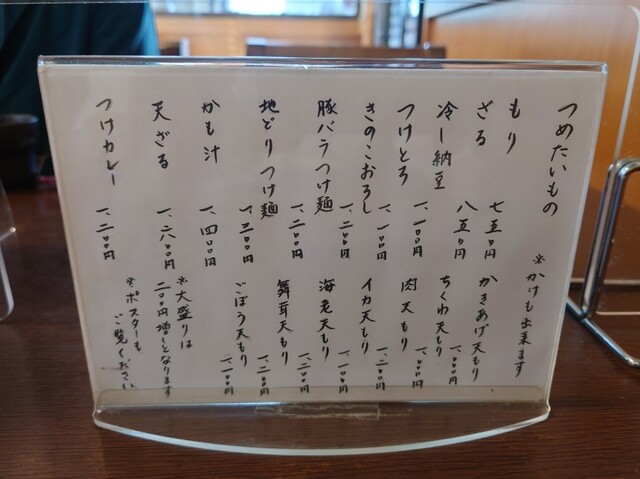 つめたいもの
もり 七五〇円
ざる 八五〇円
冷し納豆 一、一〇〇円
つけとろ 一、一〇〇円
きのこおろし 一、二〇〇円
豚バラつけ麺 一、二〇〇円
地どりつけ麺 一、三〇〇円
かも汁 一、四〇〇円
天ざる 一、六〇〇円
つけカレー 一、二〇〇円
※かけも出来ます
かきあげ天もり 一、〇〇〇円
ちくわ天もり 一、〇〇〇円
肉天もり 一、二〇〇円
イカ天もり 一、一〇〇円
海老天もり 一、二〇〇円
舞茸天もり 一、二〇〇円
ごぼう天もり 一、一〇〇円
※大盛りは
二〇〇円増しとなります
※ポスターも
ご覧ください